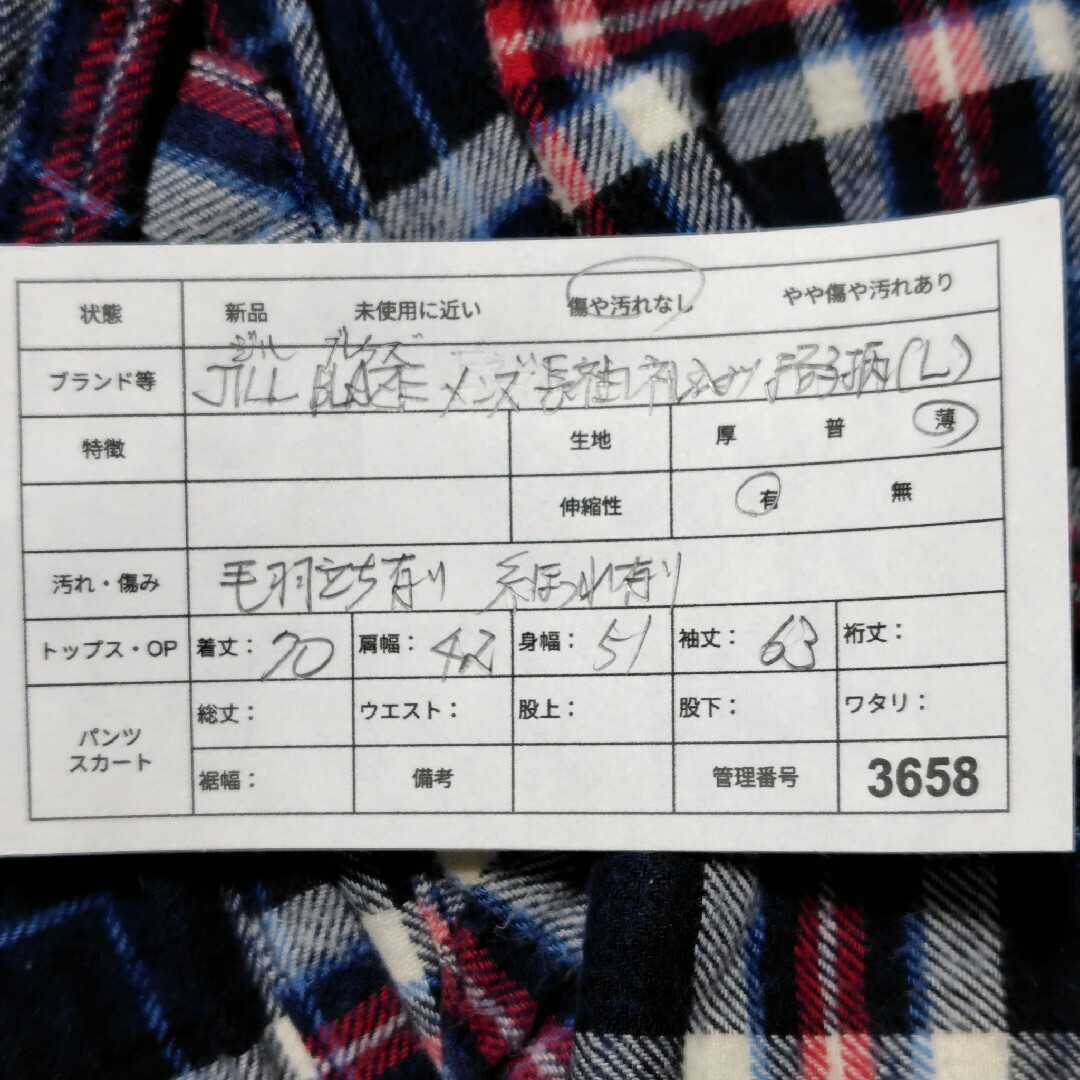 状態 新品 未使用に近い 傷や汚れなし やや傷や汚れあり
ジル ブレイズ
ブランド等 JILL BLAZE メンズ 長袖 シャツ 柄(L)
特徴 生地 厚 普 薄
伸縮性 有 無
汚れ・傷み 毛羽立ち有り 糸ほつれ有り
トップス・OP 着丈: 70 肩幅: 42 身幅: 51 袖丈: 63 裄丈:
パンツ スカート 総丈: ウエスト: 股上: 股下: ワタリ:
裾幅: 備考 管理番号 3658